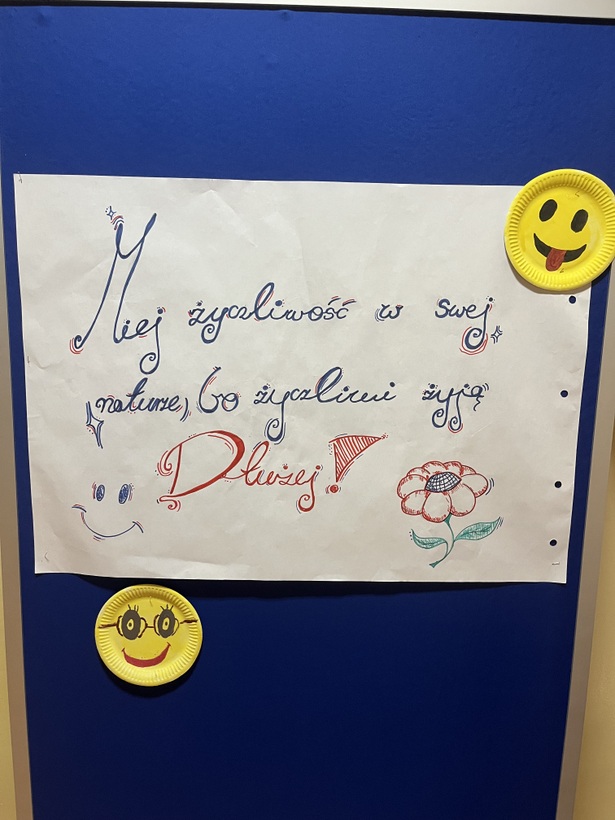 Miej życzliwość w swej
naturze, bo życzliwi żyją
Dłużej!